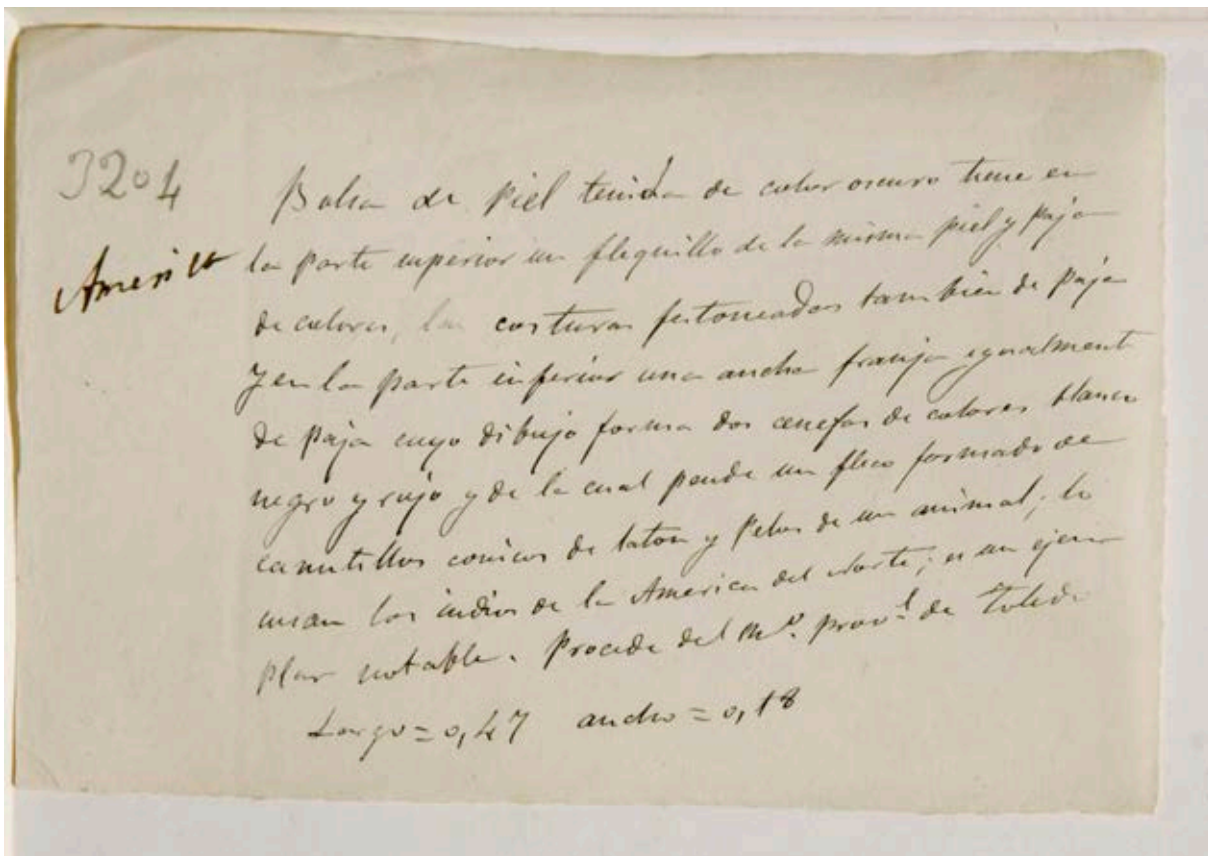 3204
America
Bolsa de piel tenida de color oscuro tiene en
la parte superior un flequillo de la misma piel y paja
de colores, las costuras festoneadas tambien de paja
y en la parte inferior una ancha franja egualment
de paja cuyo dibujo forma dos cenefas de colores blanco
negro y rojo y de la cual pende un fleco formado de
canutillos conicos de laton y pelos de un animal; lo
usan los indios de la America del Norte; es un ejem
plar notable. Procede del Mº. provl. de Toledo
Largo = 0,47 ancho = 0,18